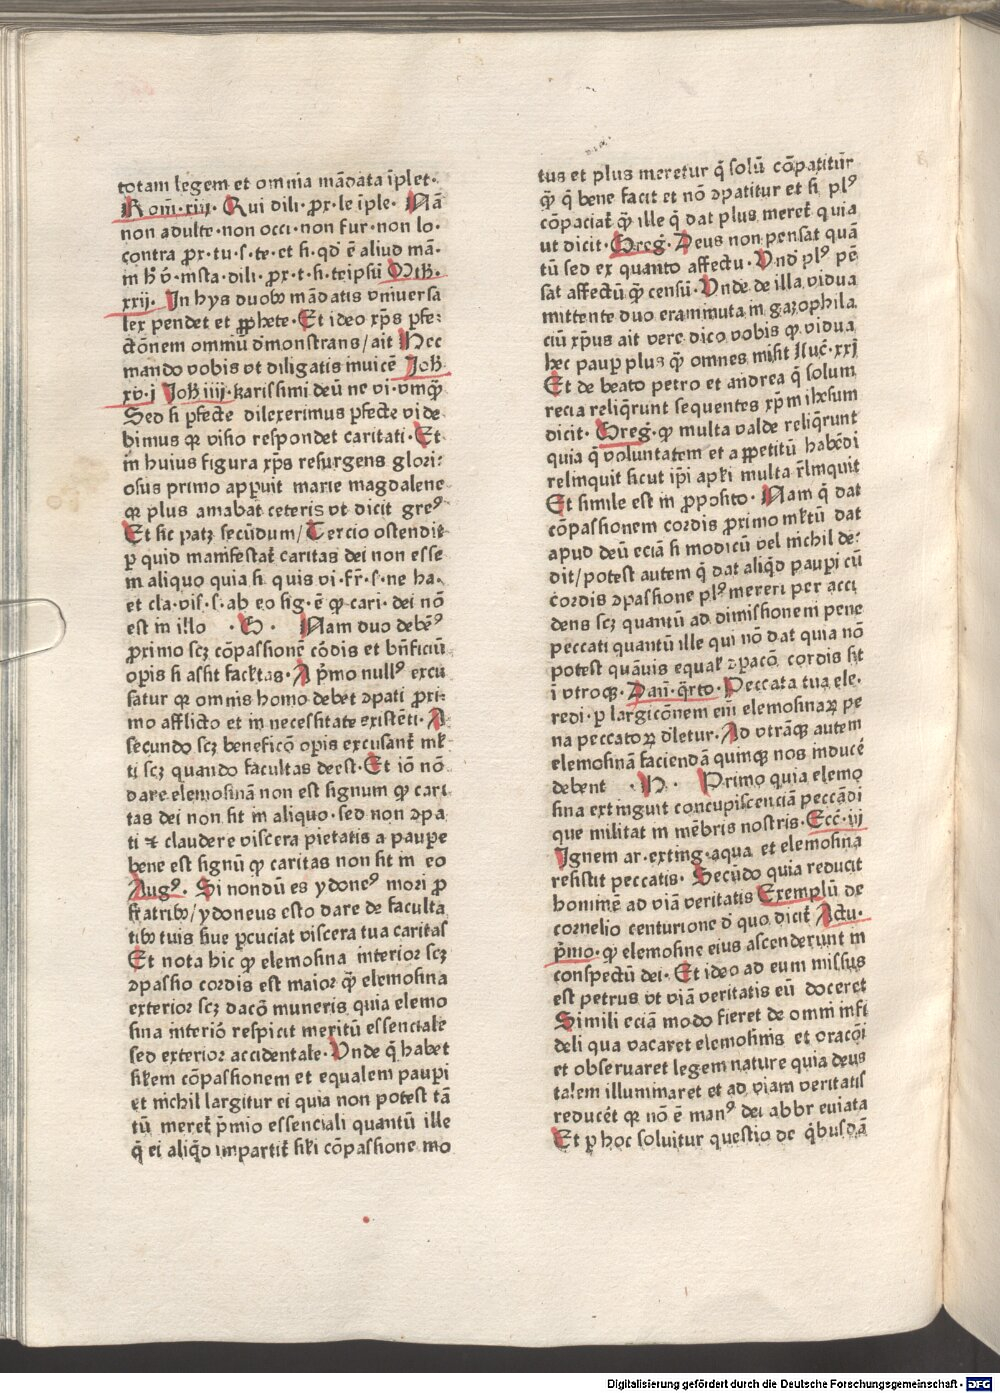 totam legem et omnia mādata īplet·
Rom̄·xiii· Qui dili·ꝓx·le iple· Nā
non adulte·non occi·non fur·non lo·
contra ꝓx·tu·s·te·et si·qd̕ ē aliud mā·
in h̄ v̄·insta·dili·ꝓx·t·s·teipsū Mth̄·
xxij· In hys duobꝰ mādatis vniuersa
lex pendet et ꝓphete· Et ideo xp̄s ꝑfe:
ctōnem omniū d̓monstrans/ait Hec
mando vobis vt diligatis inuicē Joh̄
xv·j Joh̄ iiij·karissimi deū ne vi·vmꝙ̄
Sed si ꝑfecte dilexerimus ꝑfecte vide
bimus qꝛ visio respondet caritati· Et
in huius figura xp̄s resurgens glori:
osus primo appuit marie magdalene
qꝛ plus amabat ceteris vt dicit greꝰ
Et sic patꝫ secūdum/ Tercio ostendit
ꝑ quid manifestat̄ caritas dei non esse
in aliquo quia si quis vi·fr̄·s·ne ha·
et cla·vis·s·ab eo sig·ē ꝙ cari·dei nō
est in illo ·G· Nam duo debēꝰ
ꝓximo scꝫ cōpassionē cōdis et bn̄ficiū
opis si assit facltas· A p̄mo nullꝰ excu
satur qꝛ omnis homo debet ꝯpati ꝓxi:
mo afflicto et in necessitate existēti· A
secundo scꝫ beneficō opis excusant̄ ml̄
ti scꝫ quando facultas deest· Et iō nō
dare elemosinā non est signum ꝙ cari
tas dei non sit in aliquo·sed non ꝯpa
ti ⁊ claudere viscera pietatis a paupe
bene est signū ꝙ caritas non sit in eo
Augꝰ· Si nondū es ydoneꝰ mori ꝓ
fratribꝰ/ydoneus esto dare de faculta
tibꝰ tuis siue ꝑcuciat viscera tua caritas
Et nota hic ꝙ elemosina interior scꝫ
ꝯpassio cordis est maior ꝙ̄ elemosina
exterior scꝫ dacō muneris quia elemo
sina interiō respicit meritū essenciale
sed exterior accidentale· Vnde q̄ habet
silem cōpassionem et equalem paupi
et nichil largitur ei quia non potest tā
tū meret̄ p̄mio essenciali quantū ille
q̄ ei aliq̄d impartit̄ sili cōpassione mo
tus et plus meretur q̄ solū cōpatitur̄
ꝙ̄ q̄ bene facit et nō ꝯpatitur et si plꝰ
cōpaciat̄ ꝙ̄ ille q̄ dat plus meret̄ quia
ut dicit· Greg̕· Deus non pensat quā
tū sed ex quanto affectu· Vnd̓ plꝰ pē
sat affectū ꝙ̄ censū· Vnde de illa vidua
mittente duo eraminuta in gazophila
ciū xp̄us ait vere dico vobis ꝙ vidua
hec paup plus ꝙ̄ omnes misit Luc̄·xxj
Et de beato petro et andrea q̄ solum
recia reliq̄runt sequentes xp̄m ihesum
dicit· Greg̕·ꝙ multa valde reliq̄runt
quia q̄ voluntatem et appetitū habēdi
relinquit sicut ip̄i apl̄i multa r̄linquit
Et simile est in ꝓposito· Nam q̄ dat
cōpassionem cordis ꝓximo ml̄tū dat
apud deū eciā si modicū vel nichil de:
dit/potest autem q̄ dat aliq̄d paupi cū
cordis ꝯpassione plꝰ mereri per acci
dens scꝫ quantū ad dimissionem pene
peccati quantū ille qui nō dat quia nō
potest quāuis equal̕ ꝯpacō cordis sit
ī vtroqꝫ· Dan̄·q̄rto· Peccata tua ele·
redi·ꝑ largicōnem eni elemosinaꝝ pe
na peccatoꝝ d̓letur· Ad vtrāqꝫ autem
elemosinā faciendā quinqꝫ nos inducē
debent ·N· Primo quia elemo
sina extinguit concupiscenciā peccādi
que militat in mēbris nostris· Ecc̄·iij
Ignem ar·exting·aqua et elemosina
resistit peccatis· Secūdo quia reducit
hominē ad viā veritatis Exemplū de
cornelio centurione d̓ quo dicit̄ Actu·
p̄mo·ꝙ elemosine eius ascenderunt in
conspectū dei· Et ideo ad eum missus
est petrus vt viā veritatis eū doceret
Simili eciā modo fieret de omni infi
deli qua vacaret elemosinis et oracōi
et obseruaret legem nature quia deus
talem illuminaret et ad viam veritatis
reducēt qꝛ nō ē manꝰ dei abbreuiata
Et ꝑ hoc soluitur questio de q̄busdā
Digitalisierung gefördert durch die Deutsche Forschungsgemeinschaft - DFG